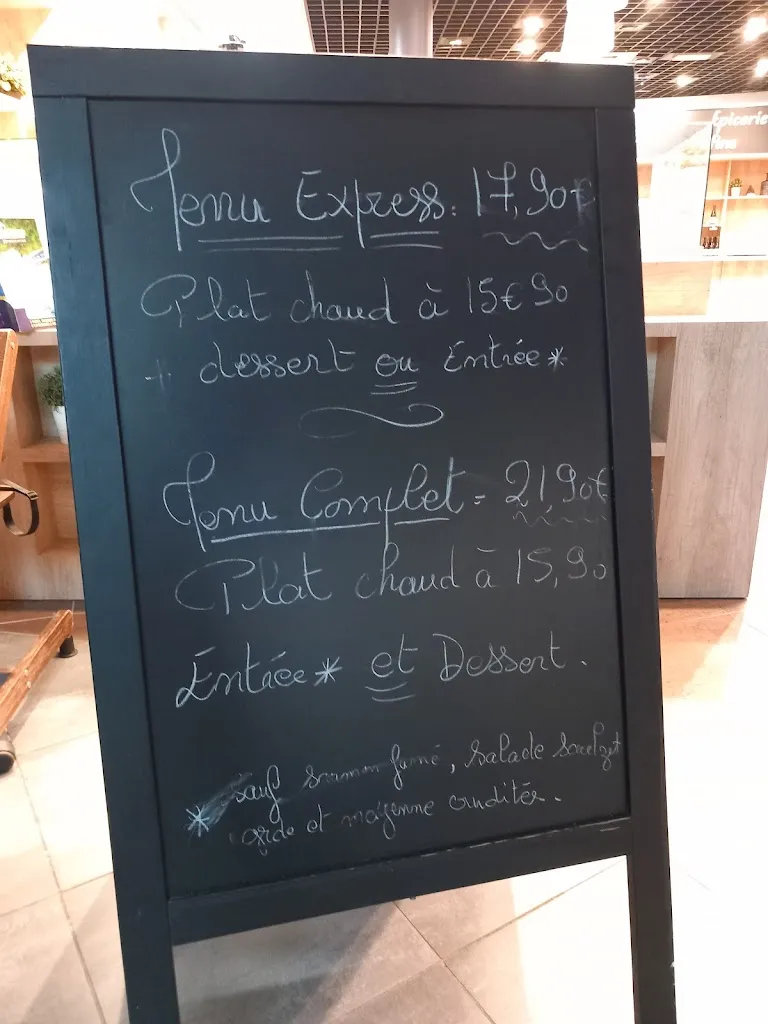 Épicerie
fine
Menu Express : 17,90€
Plat chaud à 15€90
+ dessert ou Entrée*
Menu Complet = 21,90€
Plat chaud à 15,90
Entrée* et Dessert.
* sauf saumon fumé, salade
et moyenne crudités.